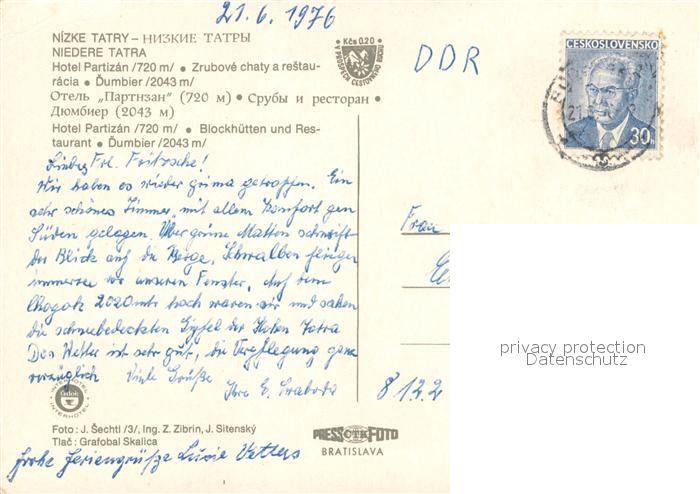 21.6.1976
NÍZKE TATRY – НИЗКИЕ ТАТРЫ
NIEDERE TATRA
Hotel Partizán /720 m/ • Zrubové chaty a reštau-
rácia • Ďumbier /2043 m/
Отель „Партнзан" (720 м) • Срубы и ресторан •
Дюмбиер (2043 м)
Hotel Partizán /720 m/ • Blockhütten und Res-
taurant • Ďumbier /2043 m/
Kčs 0.20
V PROSPECH CESTOVNÉHO RUCHU
DDR
ČESKOSLOVENSKO
30h
Liebes Frl. Fritzsche!
Wir haben es wieder prima getroffen. Ein
sehr schönes Zimmer, mit allem Komfort gen
Süden gelegen. Über grüne Matten schweift
der Blick auf die Berge, Schwalben fliegen
immerzu vor unseren Fenster. Auf dem
Chopok 2020 mtr hoch waren wir und sahen
die schneebedeckten Gipfel der Hohen Tatra
Das Wetter ist sehr gut, die Verpflegung ganz
vorzüglich Viele Grüße
Ihre E. Swaboda
Frau
8122
privacy protection
Datenschutz
INTERHOTEL
čedok
INTERHOTEL
Foto: J. Šechtl /3/, Ing. Z. Zibrin, J. Sitenský
Tlač: Grafobal Skalica
PRESSFOTO
BRATISLAVA
Frohe Feriengrüße Lucie Vetters